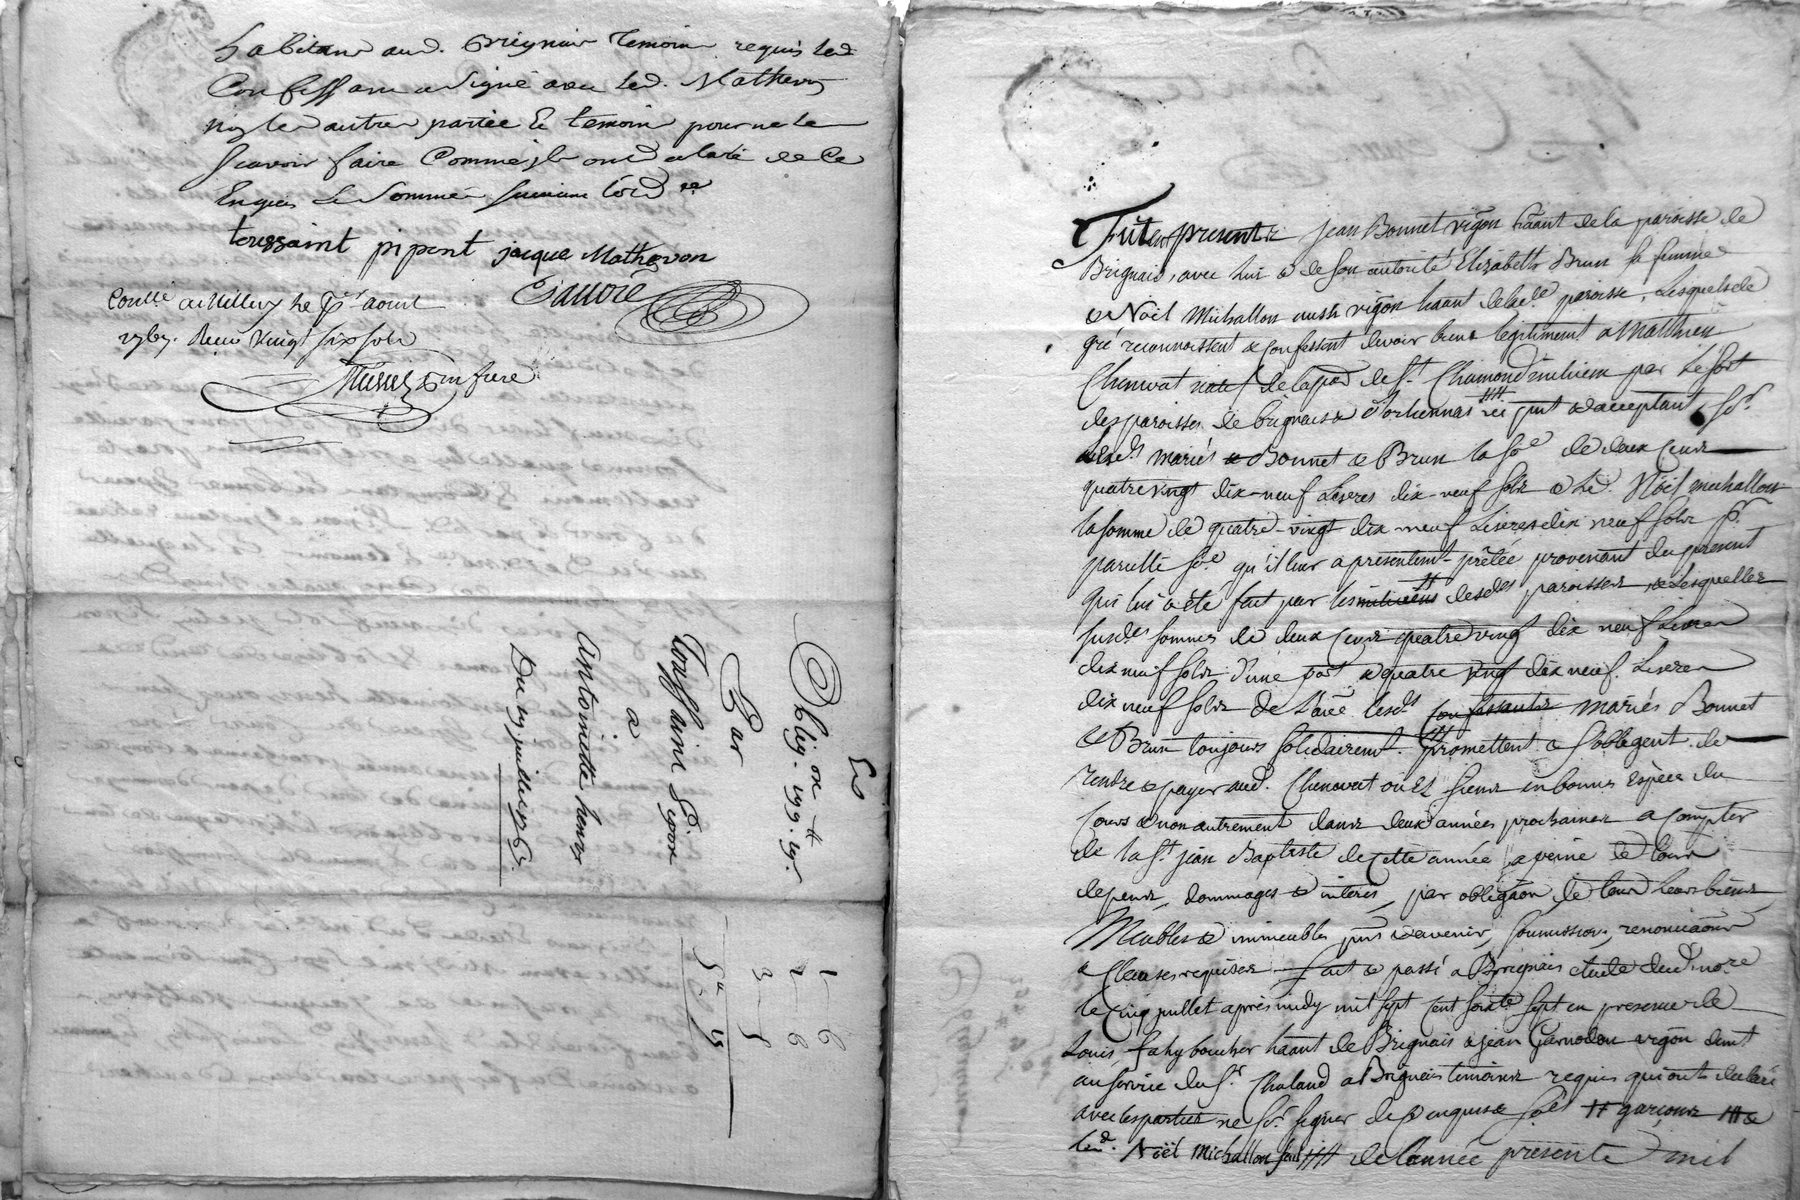 habitans aud. Brignais temoins requis led.
Confessant a signé avec led. Mathevon
non les autres parties & temoin pour ne le
scavoir faire Comme ils ont declaré de ce
Enquis & Sommés suivant l'ord re
toussaint pipont jacque Mathevon
aoust
Receu vingt six sols
Es
Oblig. on 199. lt 19.
Par
Toussaint Pipon
a
Antoinette henry
Du juillet 1767
1 6
2 6
3 5
5 lt 15
furent presents jean Bonnet vigon häant de la paroisse de
Brignais, avec lui & de son autorité Elizabeth Brun sa femme
& Noël Michallon aussi vigon häant de lad. paroisse, Lesquels de
gré reconnoissent & confessent devoir bien legitiment a Matthieu
Chenevat de la par de St. Chamond milicien par le sort
des paroisses de brignais & d'orliennas ici pnt & acceptant, sçr.
lesd. mariés Bonnet & Brun la so.e de deux cens
quatre vingt dix-neuf Livres dix-neuf sols & Led. Noël michallon
la somme de quatre-vingt dix neuf Livres dix neuf sols pr.
pareille so.e qu'il leur a presentemt. prêtée provenant du present
qui lui a été fait par les miliciens desds paroisses & Lesquelles
susdes sommes de deux cens quatre vingt dix neuf Livres
dix neuf sols d'une part & quatre vingt dix neuf Livres
dix neuf sols de l'autre lesds. confessants mariés Bonnet
& Brun toujours solidairemt. promettent & s'obligent de
rendre & payer aud. Chenevat ou es siens en bonnes espèces du
Cours & non autrement dans deux années prochaines a compter
de la St. jean Baptiste de cette année a peine de tous
depens, dommages & interes, par obligãon de tous leurs biens
Meubles & immeubles pnts & avenir, soumissions, renonciãons
& Clauses requises fait & passé a Brignais etude dud. no.re
le Cinq juillet après midy mil sept cent soixte sept en presence de
Louis fahy boucher häant de Brignais & jean Garnodon vigon demt
au service du Sr. Chaland a Brignais temoins requis qui ont declaré
avec les parties ne sçr. signer de ce enquis & so.és # garçons #
led. Noël Michallon #### de l'année presente mil